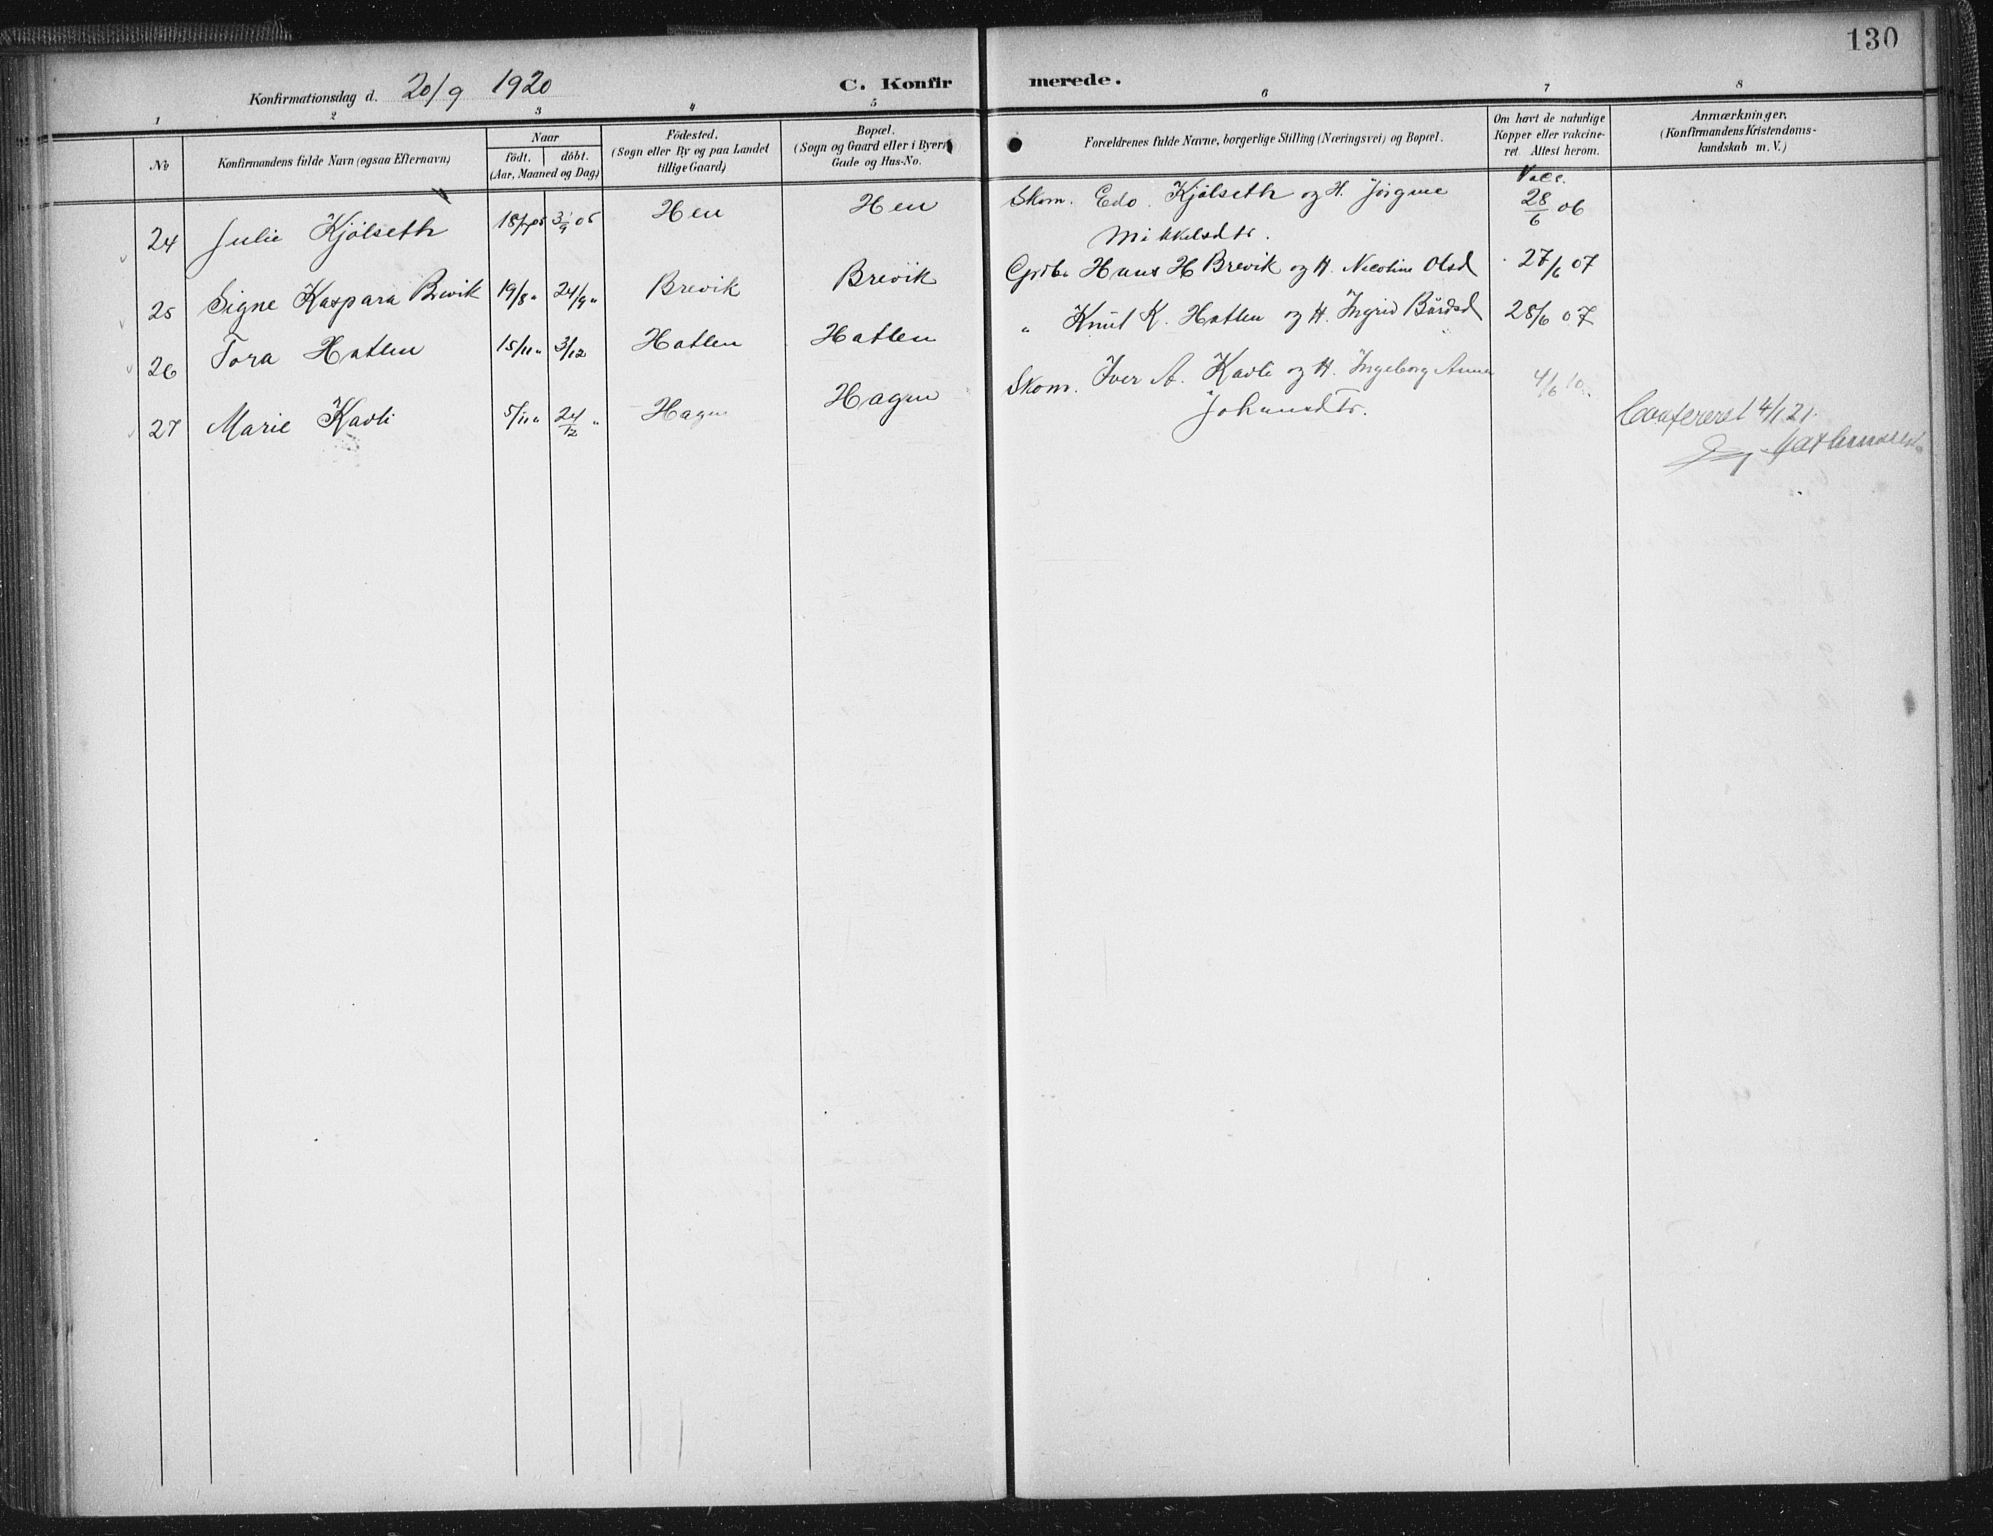 130
Konfirmationsdag d. 20/9 1920 C. Konfirmerede.
1 2 3 4 5 6 7 8
No Konfirmandens fulde Navn (ogsaa Efternavn) Naar födt. döbt. (Aar, Maaned og Dag) Födested. (Sogn eller By og paa Landet tillige Gaard) Bopæl. (Sogn og Gaard eller i Byern Gade og Hus-No. Forældrenes fulde Navne, borgerlige Stilling (Næringsvei) og Bopæl. Om havt de naturlige Kopper eller vakcineret. Attest herom. Anmærkninger. (Konfirmandens Kristendomskundskab m. V.)
Vacc.
24 Julie Kjölseth 05 3/9 05 Hen Hen Skom. Edv. Kjölseth og H. Jörgine 28/6 06
Mikkelsdtr.
25 Signe Kaspara Brevik 19/8 " 24/9 " Brevik Brevik Grdbr Hans H Brevik og H. Nicoline Olsd 27/6 07
26 Tora Hatlen 15/11 " 3/12 Hatlen Hatlen " Knut K. Hatlen og H. Ingrid Bårdsd 28/6 07
27 Marie Kavli 5/11 " 24/12 " Hagen Hagen Skom. Iver A. Kavli og H. Ingeborg Anna 4/6 10
Johansdtr.
Confereret 4/1 21.